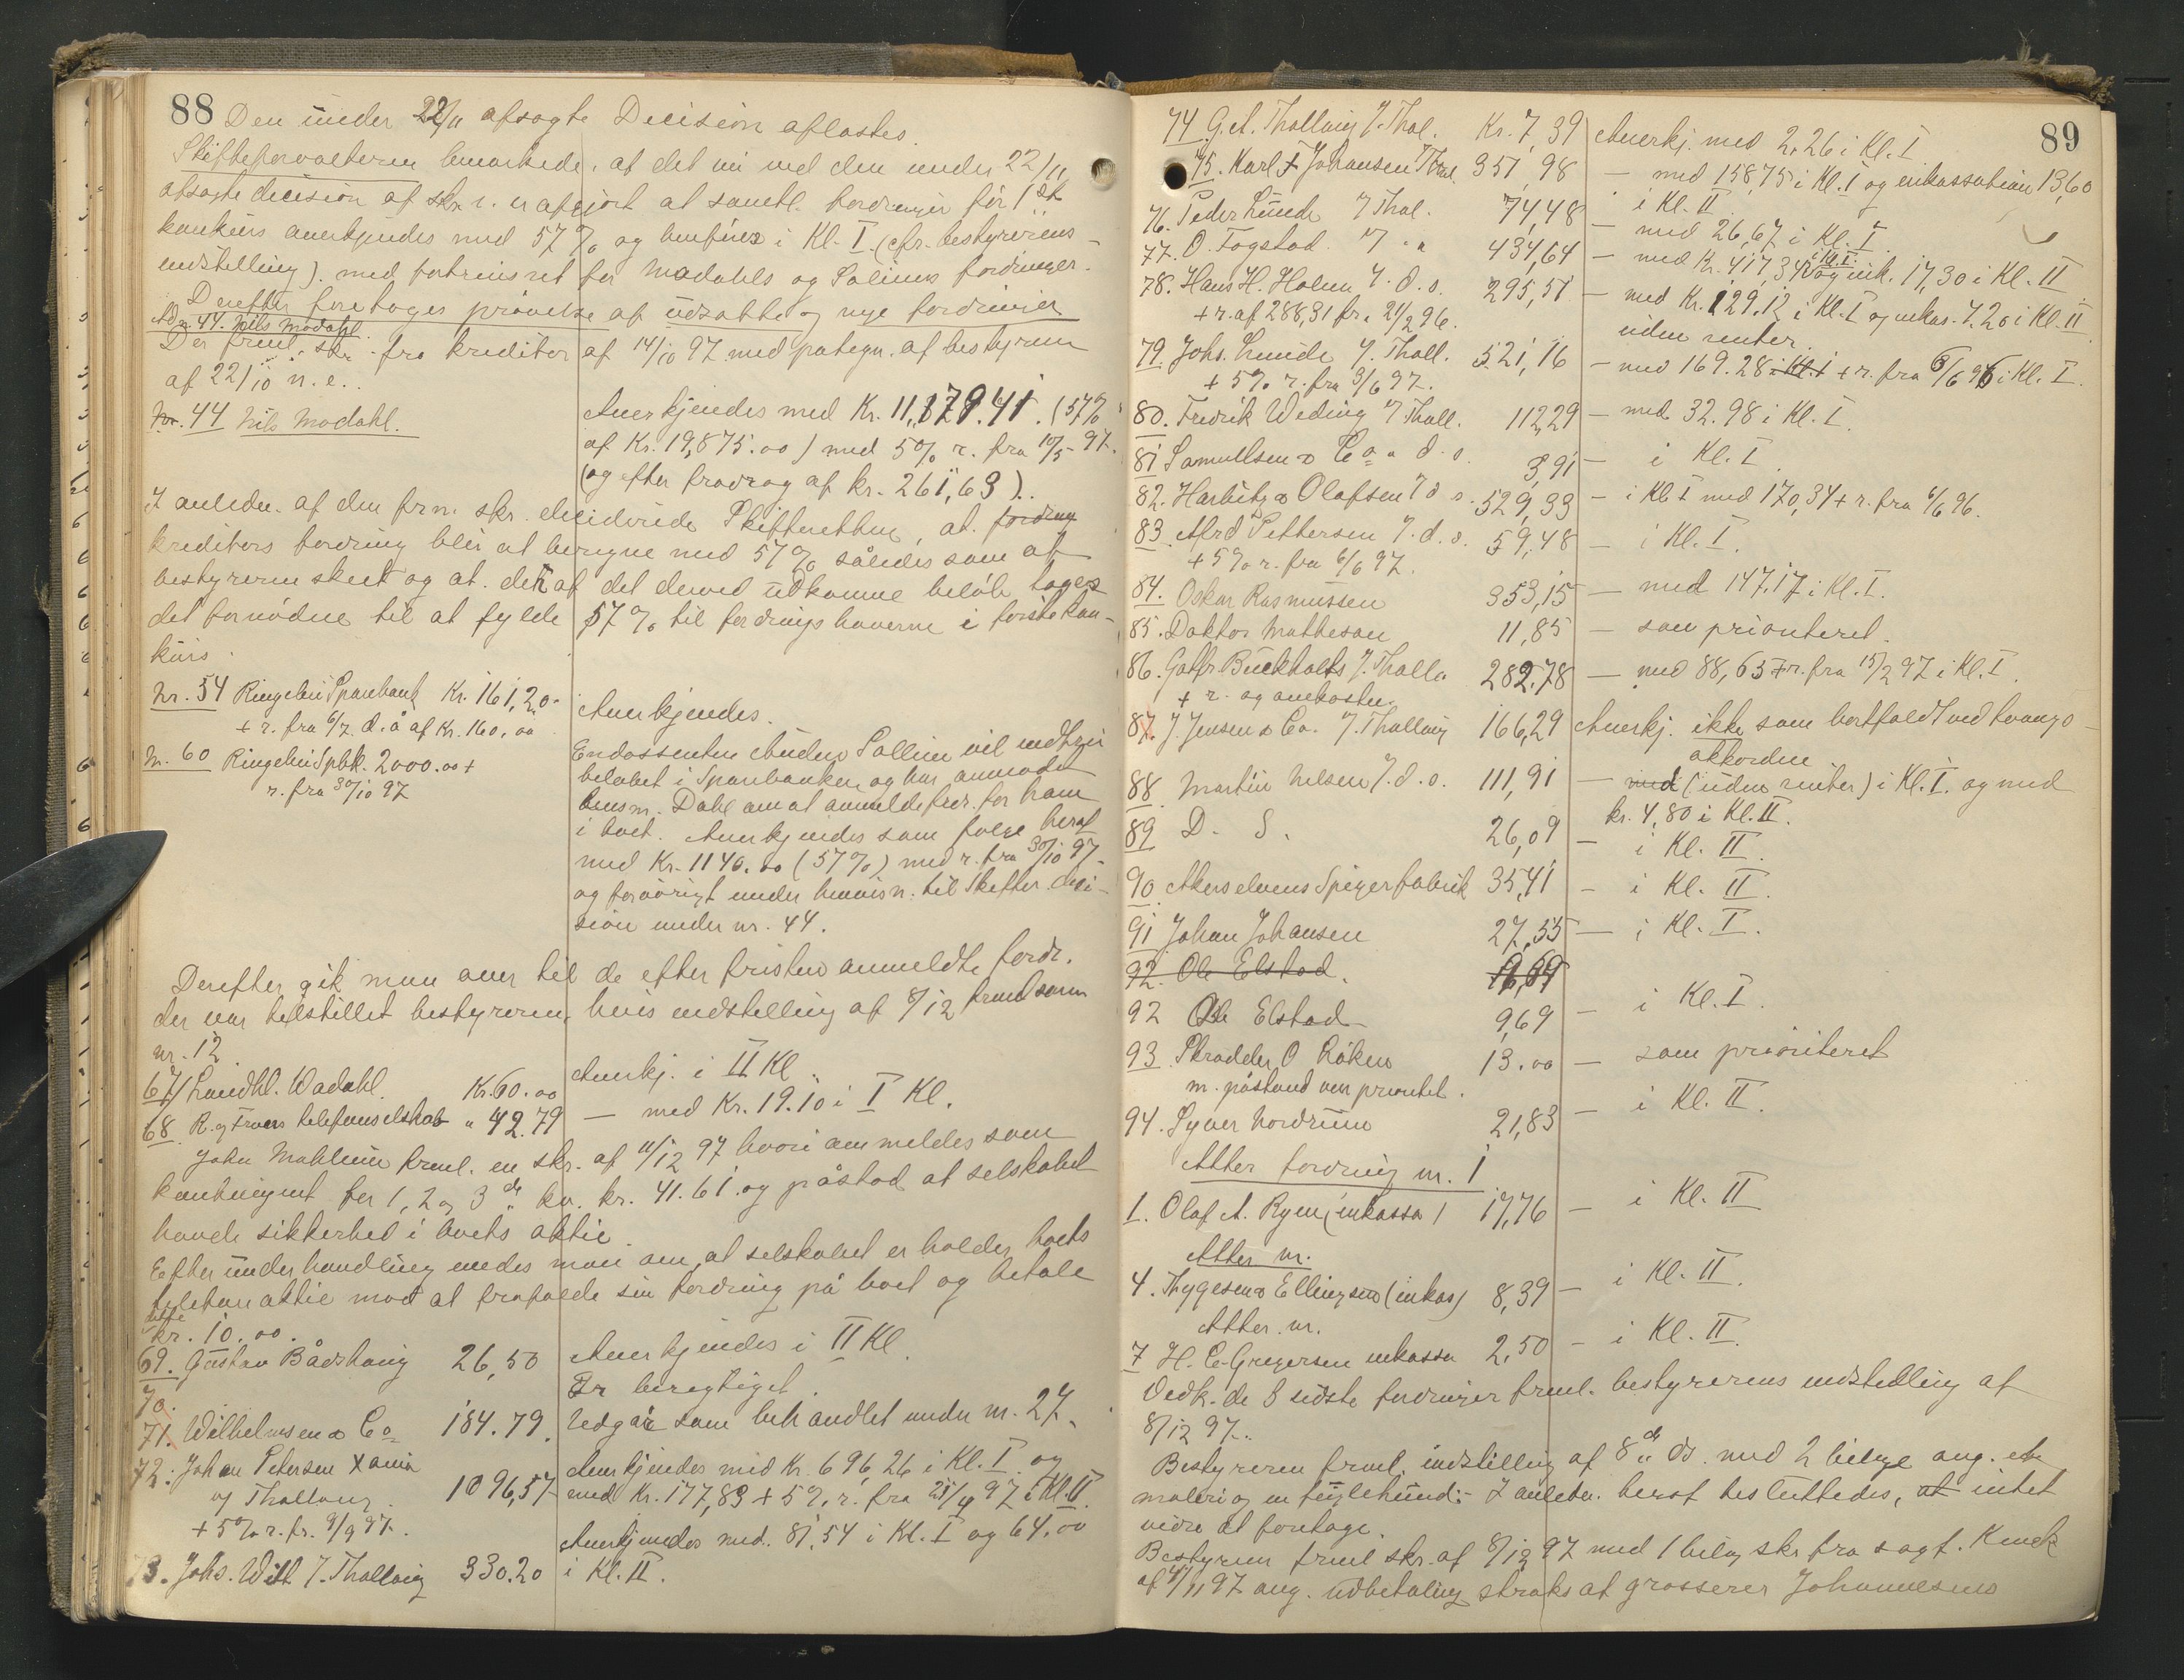 88 Den under 22/11 afsagte Decision aflæstes.
Skifteforvalteren bemærkede, at det nu ved den under 22/11
afsagte decision af skr. er afgjort at samtl. fordringer för 1ste
konkurs anerkjendes med 57% og henföres i Kl. I (cfr. bestyrerens
indstilling). med fortrinsret for Modahls og Solliens fordringer.
Derefter foretages prövelse af udsatte og nye fordringer
Ad nr. 44. Nils Modahl
Der freml. skr. fra kreditor af 14/10 97 med pategn. af bestyreren
af 22/10 n. e..
Nr. 44 Nils Modahl.
Anerkjendes med Kr. 11,179.41. (57%
af Kr. 19,875.00) med 5% r. fra 10/5 97.
(og efter fradrag af kr. 261,63)..
I anledn. af den frn. skr. deciderede Skifteretten, at fordring
kreditors fordring blir at beregne med 57% således som af
bestyreren skeet og at der af det derved udkomne belöb tages
det fornödne til at fylde 57% til fordringshaverne i förste kon-
kurs.
Nr. 54 Ringebu Sparebank Kr. 161,20
+ r. fra 6/7 d. å af Kr. 160,00
Anerkjendes.
Nr. 60 Ringebu Spbk. 2000.00 +
r. fra 30/10 97
Endossenten Anders Sollien vil indfri
belöbet i Sparebanken og har anmodet
lensm. Dahl om at anmelde fordr. for ham
i boet. Anerkjendes som fölge heraf
med Kr. 1140.00 (57%) med r. fra 30/10 97
og forövrigt under henvisn. til Skifter. deci-
sion under nr. 44.
Derefter gik man over til de efter fristen anmeldte fordr.
der var tilstillet bestyreren, hvis indstilling af 8/12 freml som
nr. 12
67/ Landhl. Wadahl. Kr. 60.00 Anerkj. i II Kl.
68 R. og Froens telefonselskab " 42.79 — med Kr. 19.10 i I Kl.
John Mæhlum freml. en skr. af 11/12 97 hvori anmeldes som
kontingent for 1, 2 og 3de kv. kr. 41.61 og påstod at selskabet
havde sikkerhed i boets aktie.
Efter underhandling enedes man om, at selskabet erholder boets
telefonaktie mod at frafalde sin fordring på boet og betale
dette
kr. 10.00.
69. Gustav Bådshaug 26,50 Anerkjendes i II Kl.
70. Er berigtiget.
71. Wilhelmsen & Co 184.79. Udgår som behandlet under nr. 27.
72. Johan Petersen Xania
og Thallaug 1096,57
+ 5% r. fr. 9/9 97.
Anerkjendes med Kr. 696,26 i Kl. I og
med Kr. 177,83 + 5% r. fra 25/4 97 i Kl. II.
73. Johs. Witt 7. Thallaug 330.20
Anerkjendes med. 81,54 i Kl. I og 64.00
i Kl. II.
89
74 G. A. Thallaug 7. Thal. Kr. 7,39 Anerkj. med 2,26 i Kl. I
75. Karl F Johansen Thal 351,98 — med 158,75 i Kl. I og inkassation 13,60
i Kl. II
76. Peder Lunde 7 Thal. 74,48 — med 26,67 i Kl. I.
77. O. Fogstad 7 " " 434,64 — med Kr. 417,34 i Kl. I. og ink. 17,30 i Kl. II
78. Hans H. Holm 7. d. o. 295,51 — med Kr. 129,12 i Kl. I og inkas. 7.20 i Kl. II
+ r. af 288,31 fr. 21/2 96. uden renter.
79. Johs. Lunde 7. Thall. 521,16 — med 169.28 i Kl. I + r. fra 6/6 96 i Kl. I.
+ 5% r. fra 3/6 97.
80. Fredrik Weding 7 Thall. 112,29 — med 32.98 i Kl. I.
81 Samuelsen & Co " d. o. 3,91 — i Kl. I.
82. Harbitz & Olafsen 7 d o. 529,33 — i Kl I med 170,34 + r. fra 6/6 96.
83 Alfrd Pettersen 7. d. o. 59,48 — i Kl. I.
+ 5% r. fra 6/6 97.
84. Oskar Rasmussen 353,15 — med 147.17 i Kl. I.
85. Doktor Matheson 11,85 — som prioriteret.
86. Gotfr. Buckholts 7. Thall. 282.78 — med 88,65 + r. fra 15/2 97 i Kl. I.
+ r. og omkostn.
87. J. Jensen & Co. 7. Thallaug 166,29 Anerkj. ikke som bortfaldt ved tvangs-
akkorden
88 Martin Nelsen 7. d. o. 111,91 — med (uden renter) i Kl. I. og med
kr. 4,80 i Kl. II.
89 D. S. 26,09 — i Kl. II.
90 Akerselvens Spigerfabrik 35,41 — i Kl. II.
91 Johan Johansen 27,55 — i Kl. I.
92. Ole Elstad. 9,69
92 Ole Elstad 9,69 — i Kl. I.
93. Skrædder O Råken 13.00 — som prioriteret
m. påstand om prioritet.
94. Syver Nordrum 21,83 — i Kl. II.
Atter fordring nr. 1
1. Olaf A. Ryen (inkasso) 17,76 — i Kl. II
Atter nr.
4. Thygesen & Ellingsen (inkas) 8,39 — i Kl. II.
Atter nr.
7 H. C. Gregersen inkasso 2,50 — i Kl. II.
Vedk. de 3 sidste fordringer freml. bestyrerens indstilling af
8/12 97.
Bestyreren freml. indstilling af 8de ds. med 2 bilage ang. et
maleri og en fuglehund. I anledn. heraf besluttedes, at intet
videre at foretage.
Bestyreren freml skr. af 8/12 97 med 1 bilag skr. fra sagf. Kinck
af 4/11 97 ang. udbetaling straks at grosserer Johannesens